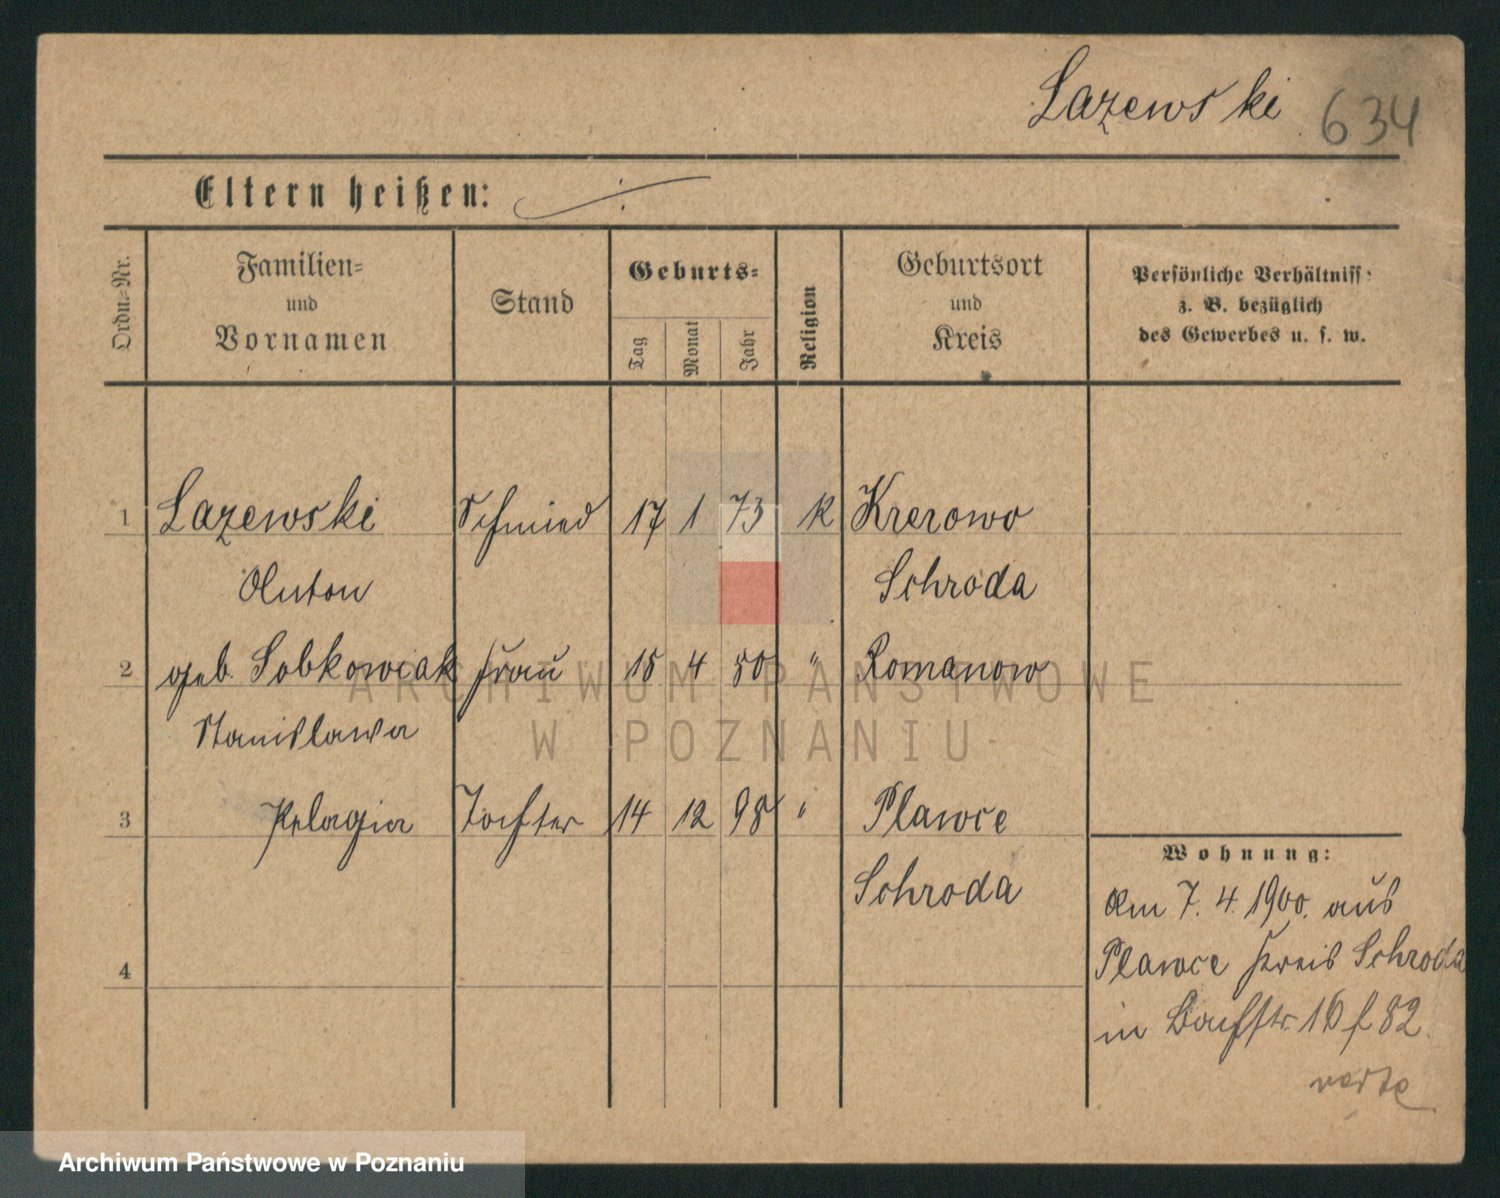 Lazewski 634
Eltern heißen:
Ordn.-Nr.
Familien-
und
Vornamen
Stand
Geburts-
Tag
Monat
Jahr
Religion
Geburtsort
und
Kreis
Persönliche Verhältniss:
z. B. bezüglich
des Gewerbes u. s. w.
1 Lazewski Schmied 17 1 73 K Krerowo
Anton Schroda
2 geb. Sobkowiak Frau 15 4 80 " Romanow
Stanislawa
3 Pelagia Tochter 14 12 98 " Plawce
Schroda
4
Wohnung:
Am 7. 4. 1900. aus
Plawce Kreis Schroda
in Bachstr 16 f 82.
verte
ARCHIWUM PAŃSTWOWE
W POZNANIU
Archiwum Państwowe w Poznaniu